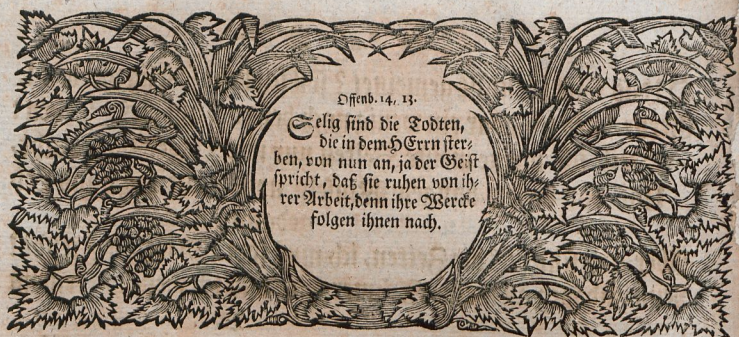 Offenb. 14, 13.
Selig sind die Todten,
die in dem HErrn ster-
ben, von nun an, ja der Geist
spricht, daß sie ruhen von ih-
rer Arbeit, denn ihre Wercke
folgen ihnen nach.